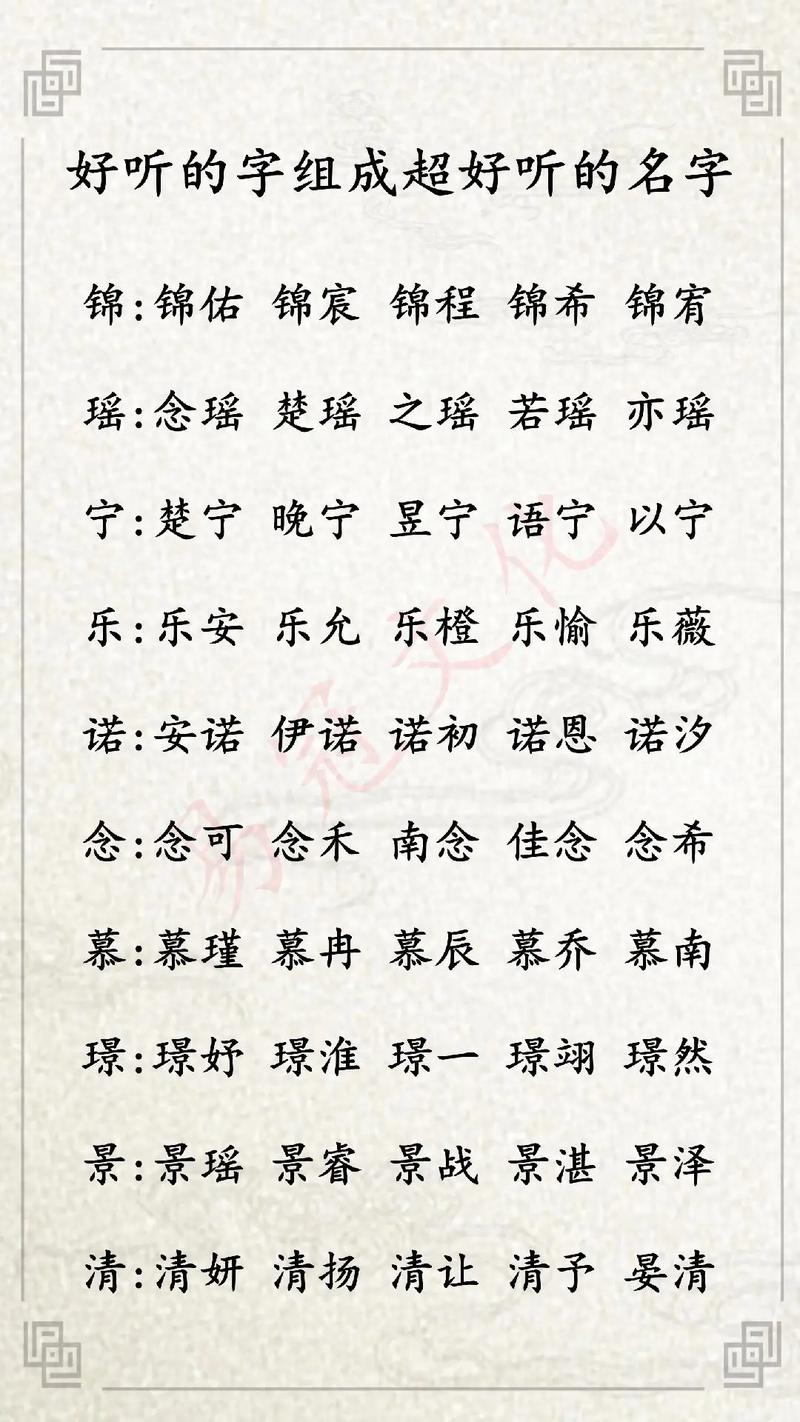 好听的字组成超好听的名字
锦:锦佑 锦宸 锦程 锦希 锦宥
瑶:念瑶 楚瑶 之瑶 若瑶 亦瑶
宁:楚宁 晚宁 昱宁 语宁 以宁
乐:乐安 乐允 乐橙 乐愉 乐薇
诺:安诺 伊诺 诺初 诺恩 诺汐
念:念可 念禾 南念 佳念 念希
慕:慕瑾 慕冉 慕辰 慕乔 慕南
璟:璟妤 璟淮 璟一 璟翊 璟然
景:景瑶 景睿 景战 景湛 景泽
清:清妍 清扬 清让 清予 晏清
易冠文化